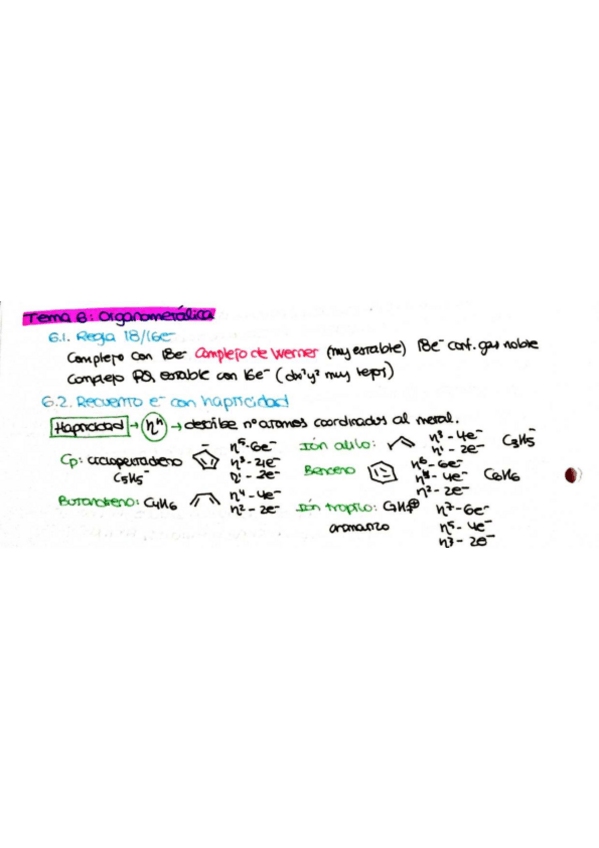 Tema 6: Organometálica
6.1. Regla 18/16e⁻
Complejo con 18e⁻ Complejo de Werner (muy estable) 18e⁻ conf. gas noble
Complejo PQ estable con 16e⁻ (dx²y² muy repr)
6.2. Recuento e⁻ con hapticidad
Hapticidad → ηⁿ → describe nº átomos coordinados al metal.
Cp: ciclopentadieno
C5H5⁻
η⁵-6e⁻
η³-4e⁻
η¹-2e⁻
Ión alilo:
η³-4e⁻
η¹-2e⁻
C3H5⁻
Benceno
η⁶-6e⁻
η⁴-4e⁻
η²-2e⁻
C6H6
Butanodieno: C4H6
η⁴-4e⁻
η²-2e⁻
Ión tropilo: C7H7⊕
aromático
η⁷-6e⁻
η⁵-4e⁻
η³-2e⁻